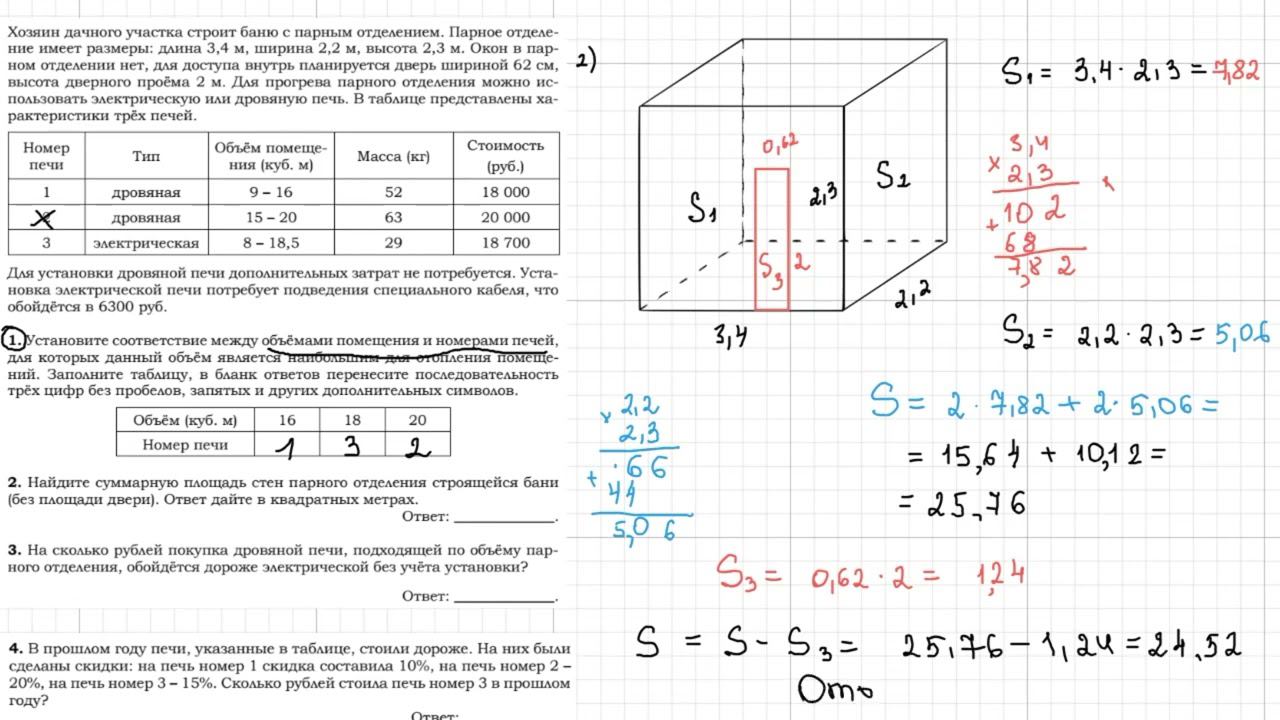 Хозяин дачного участка строит баню с парным отделением. Парное отделе-
ние имеет размеры: длина 3,4 м, ширина 2,2 м, высота 2,3 м. Окон в пар-
ном отделении нет, для доступа внутрь планируется дверь шириной 62 см,
высота дверного проёма 2 м. Для прогрева парного отделения можно ис-
пользовать электрическую или дровяную печь. В таблице представлены ха-
рактеристики трёх печей.
Номер печи | Тип | Объём помеще-ния (куб. м) | Масса (кг) | Стоимость (руб.)
1 | дровяная | 9 – 16 | 52 | 18 000
2 | дровяная | 15 – 20 | 63 | 20 000
3 | электрическая | 8 – 18,5 | 29 | 18 700
Для установки дровяной печи дополнительных затрат не потребуется. Уста-
новка электрической печи потребует подведения специального кабеля, что
обойдётся в 6300 руб.
1. Установите соответствие между объёмами помещения и номерами печей,
для которых данный объём является наибольшим для отопления помеще-
ний. Заполните таблицу, в бланк ответов перенесите последовательность
трёх цифр без пробелов, запятых и других дополнительных символов.
Объём (куб. м) | 16 | 18 | 20
Номер печи | 1 | 3 | 2
2. Найдите суммарную площадь стен парного отделения строящейся бани
(без площади двери). Ответ дайте в квадратных метрах.
Ответ: ____________.
3. На сколько рублей покупка дровяной печи, подходящей по объёму пар-
ного отделения, обойдётся дороже электрической без учёта установки?
Ответ: ____________.
4. В прошлом году печи, указанные в таблице, стоили дороже. На них были
сделаны скидки: на печь номер 1 скидка составила 10%, на печь номер 2 –
20%, на печь номер 3 – 15%. Сколько рублей стоила печь номер 3 в прошлом
году?
Ответ:
2)
0,62
S1
2,3
S2
S3 2
2,2
3,4
S1 = 3,4 · 2,3 = 7,82
3,4
× 2,3
+ 102
68
7,82
S2 = 2,2 · 2,3 = 5,06
2,2
× 2,3
+ 66
44
5,06
S = 2 · 7,82 + 2 · 5,06 =
= 15,64 + 10,12 =
= 25,76
S3 = 0,62 · 2 = 1,24
S = S - S3 = 25,76 - 1,24 = 24,52
Отв